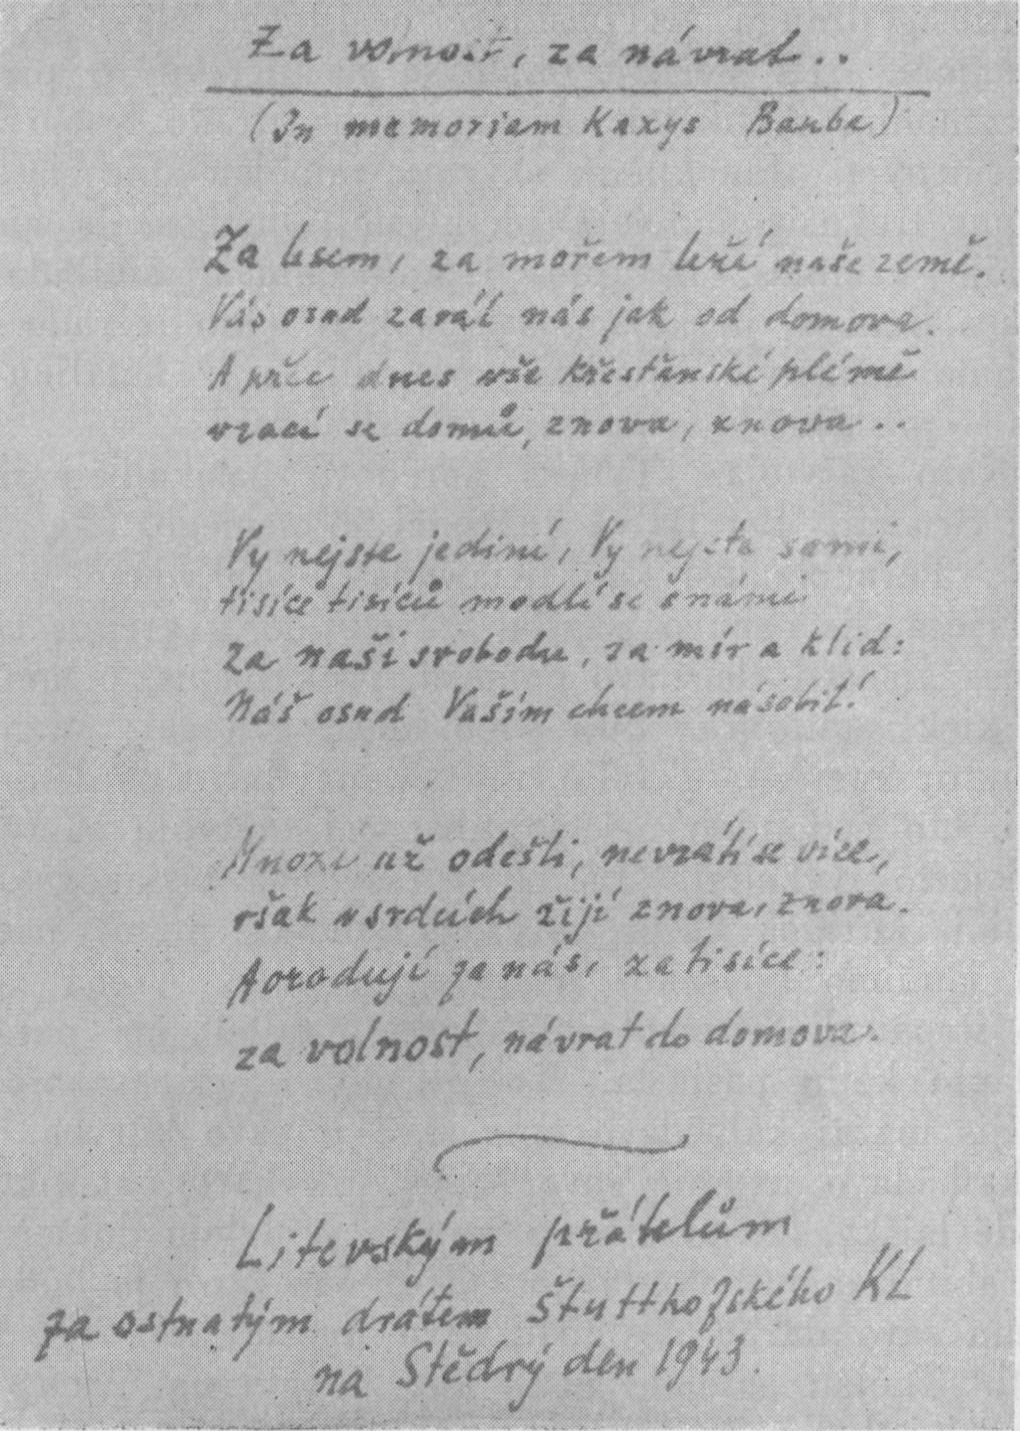 Za volnost, za návrat..
(In memoriam Kazys Bauba)
Za lesem, za mořem leží naše země.
Vás osud zavál nás jak od domova.
A přec dnes vše křesťanské plémě
vrací se domů, znova, znova..
Vy nejste jediní, Vy nejste sami,
tisíce tisíců modlí se s námi
za naši svobodu, za mír a klid:
Náš osud Vaším chcem násobit!
Mnozí už odešli, nevrátí se více,
však v srdcích žijí znova, znova.
A orodují za nás, za tisíce:
za volnost, návrat do domova.
Litevským přátelům
za ostnatým drátem Štutthofského KL
na Štědrý den 1943.